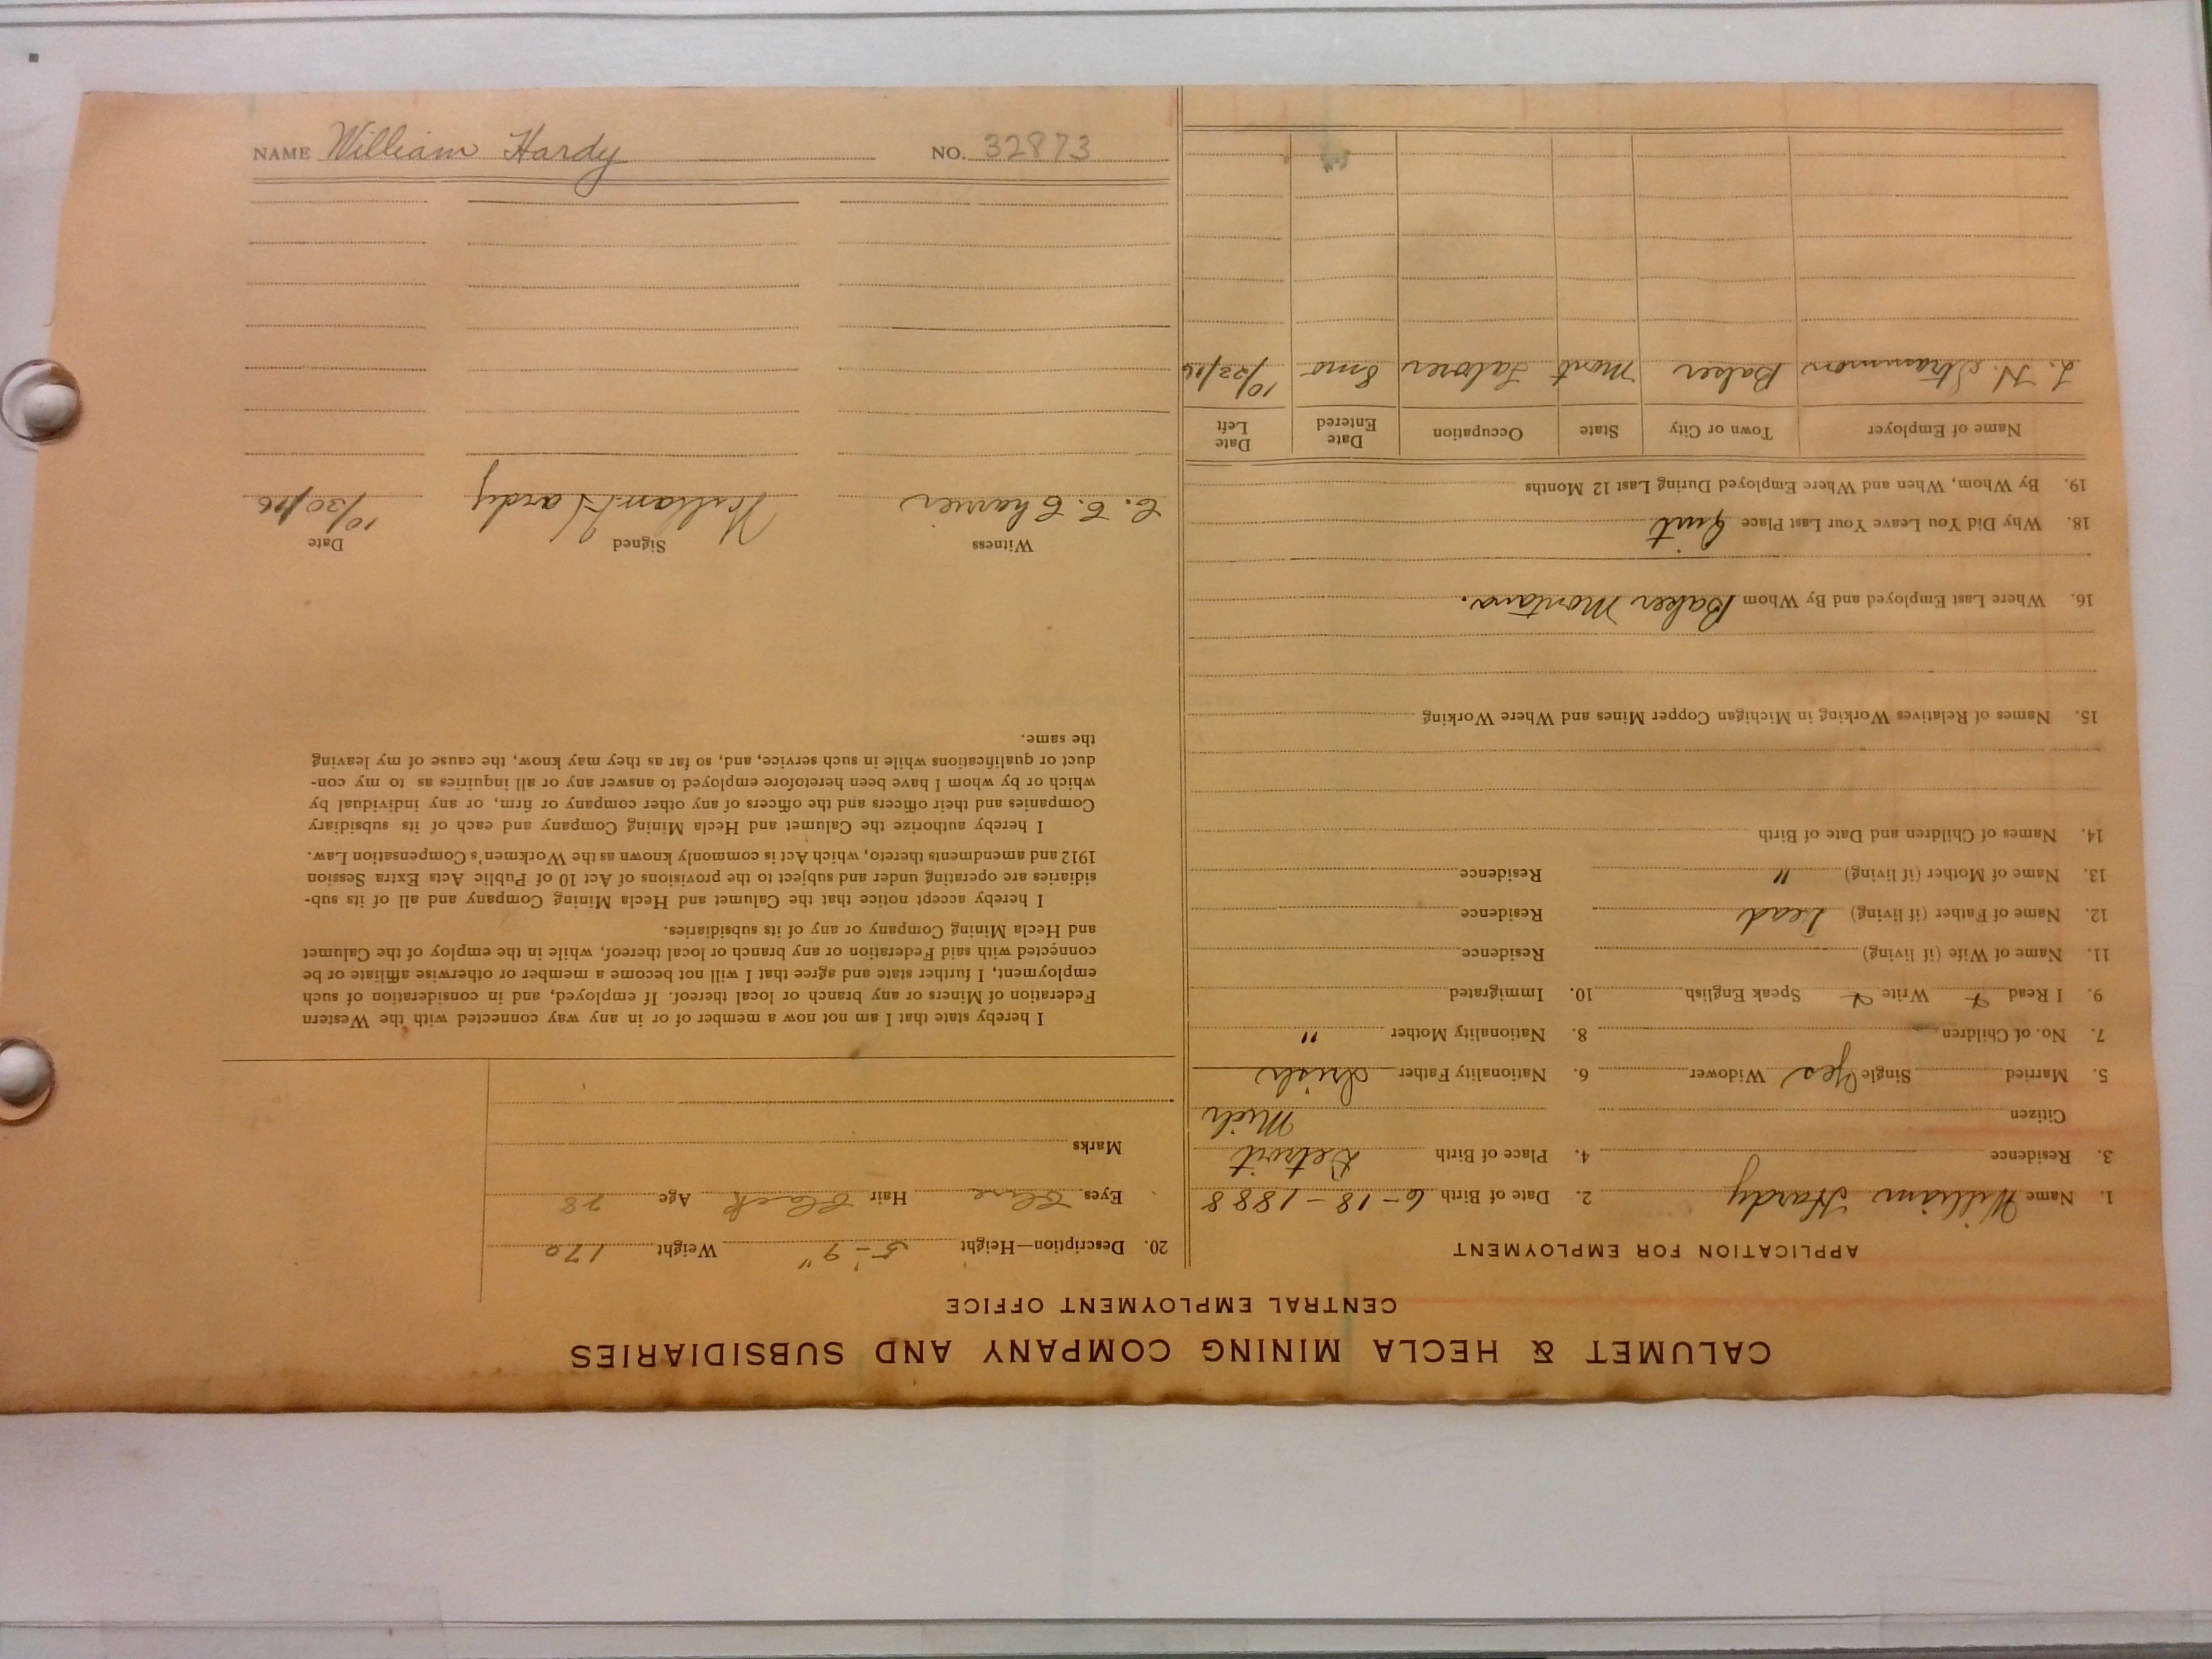 CALUMET & HECLA MINING COMPANY AND SUBSIDIARIES
CENTRAL EMPLOYMENT OFFICE
APPLICATION FOR EMPLOYMENT
1. Name William Hardy 2. Date of Birth 6-18-1888
3. Residence 4. Place of Birth Detroit
Citizen Mich
5. Married Single Yes Widower 6. Nationality Father Irish
7. No. of Children 8. Nationality Mother "
9. I Read Write Speak English 10. Immigrated
11. Name of Wife (if living) Residence
12. Name of Father (if living) Dead Residence
13. Name of Mother (if living) " Residence
14. Names of Children and Date of Birth
15. Names of Relatives Working in Michigan Copper Mines and Where Working
16. Where Last Employed and By Whom Baker Montana.
18. Why Did You Leave Your Last Place Quit
19. By Whom, When and Where Employed During Last 12 Months
Name of Employer Town or City State Occupation Date Entered Date Left
Baker Mont Laborer 8 mo 10/23/16
20. Description—Height 5'-9" Weight 170
Eyes Blue Hair Black Age 28
Marks
I hereby state that I am not now a member of or in any way connected with the Western
Federation of Miners or any branch or local thereof. If employed, and in consideration of such
employment, I further state and agree that I will not become a member or otherwise affiliate or be
connected with said Federation or any branch or local thereof, while in the employ of the Calumet
and Hecla Mining Company or any of its subsidiaries.
I hereby accept notice that the Calumet and Hecla Mining Company and all of its sub-
sidiaries are operating under and subject to the provisions of Act 10 of Public Acts Extra Session
1912 and amendments thereto, which Act is commonly known as the Workmen's Compensation Law.
I hereby authorize the Calumet and Hecla Mining Company and each of its subsidiary
Companies and their officers and the officers of any other company or firm, or any individual by
which or by whom I have been heretofore employed to answer any or all inquiries as to my con-
duct or qualifications while in such service, and, so far as they may know, the cause of my leaving
the same.
Witness Signed Date
William Hardy 10/30/16
NAME William Hardy NO. 32873